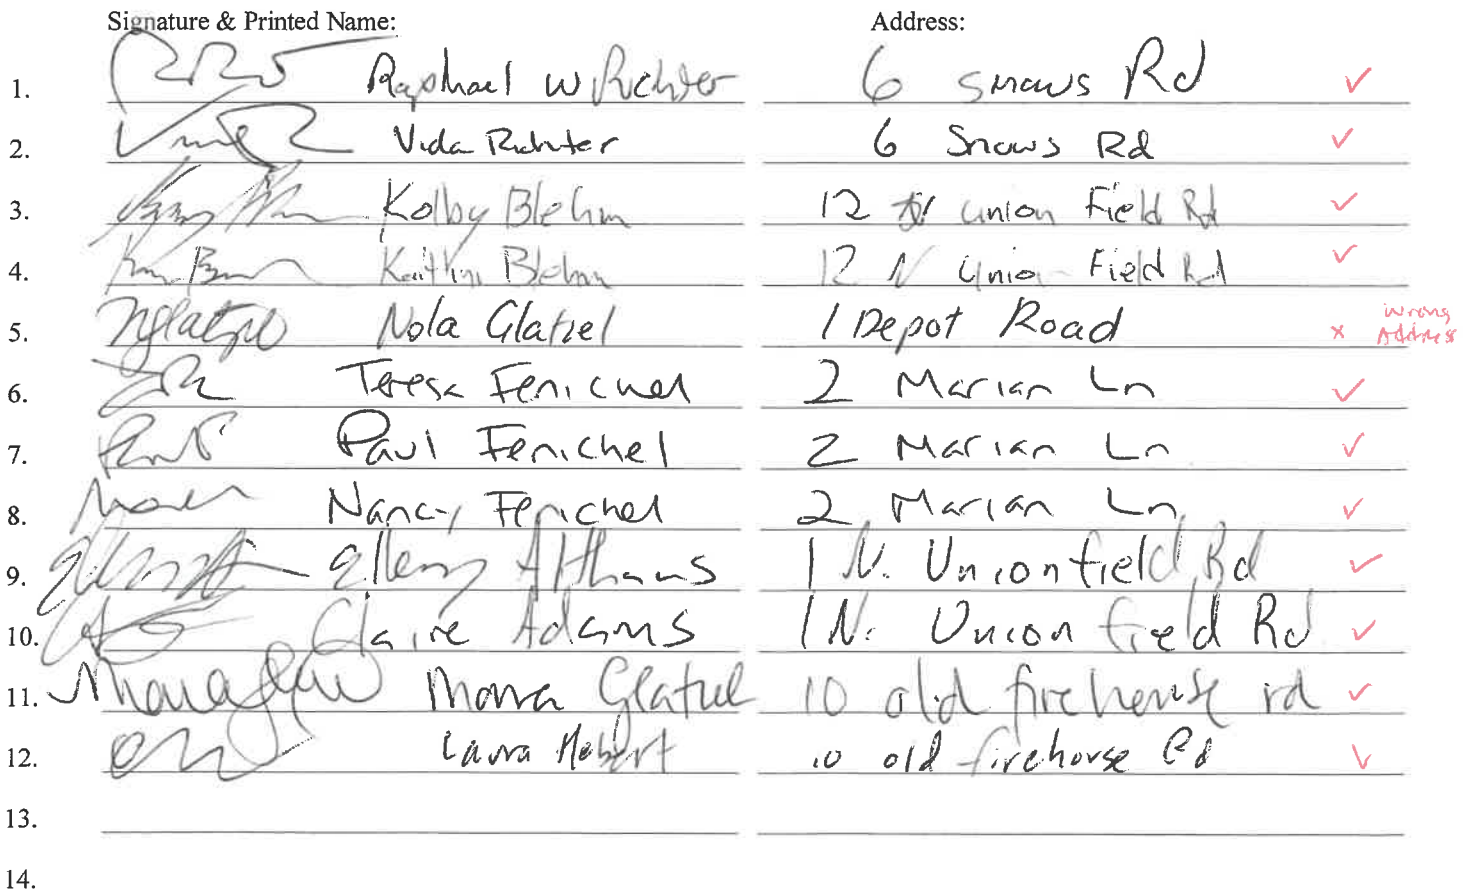 Signature & Printed Name: Address:
1. Raphael W Richter 6 Snows Rd ✓
2. Vida Richter 6 Snows Rd ✓
3. Kolby Blehm 12 N Union Field Rd ✓
4. Kaitlin Blehm 12 N Union Field Rd ✓
5. Nola Glatzel 1 Depot Road x wrong Address
6. Teresa Fenichel 2 Marian Ln ✓
7. Paul Fenichel 2 Marian Ln ✓
8. Nancy Fenichel 2 Marian Ln ✓
9. Ellery Althaus 1 N. Union field Rd ✓
10. Claire Adams 1 N. Union field Rd ✓
11. Mona Glatzel 10 old firehouse rd ✓
12. Laura Hebert 10 old firehouse Rd ✓
13.
14.